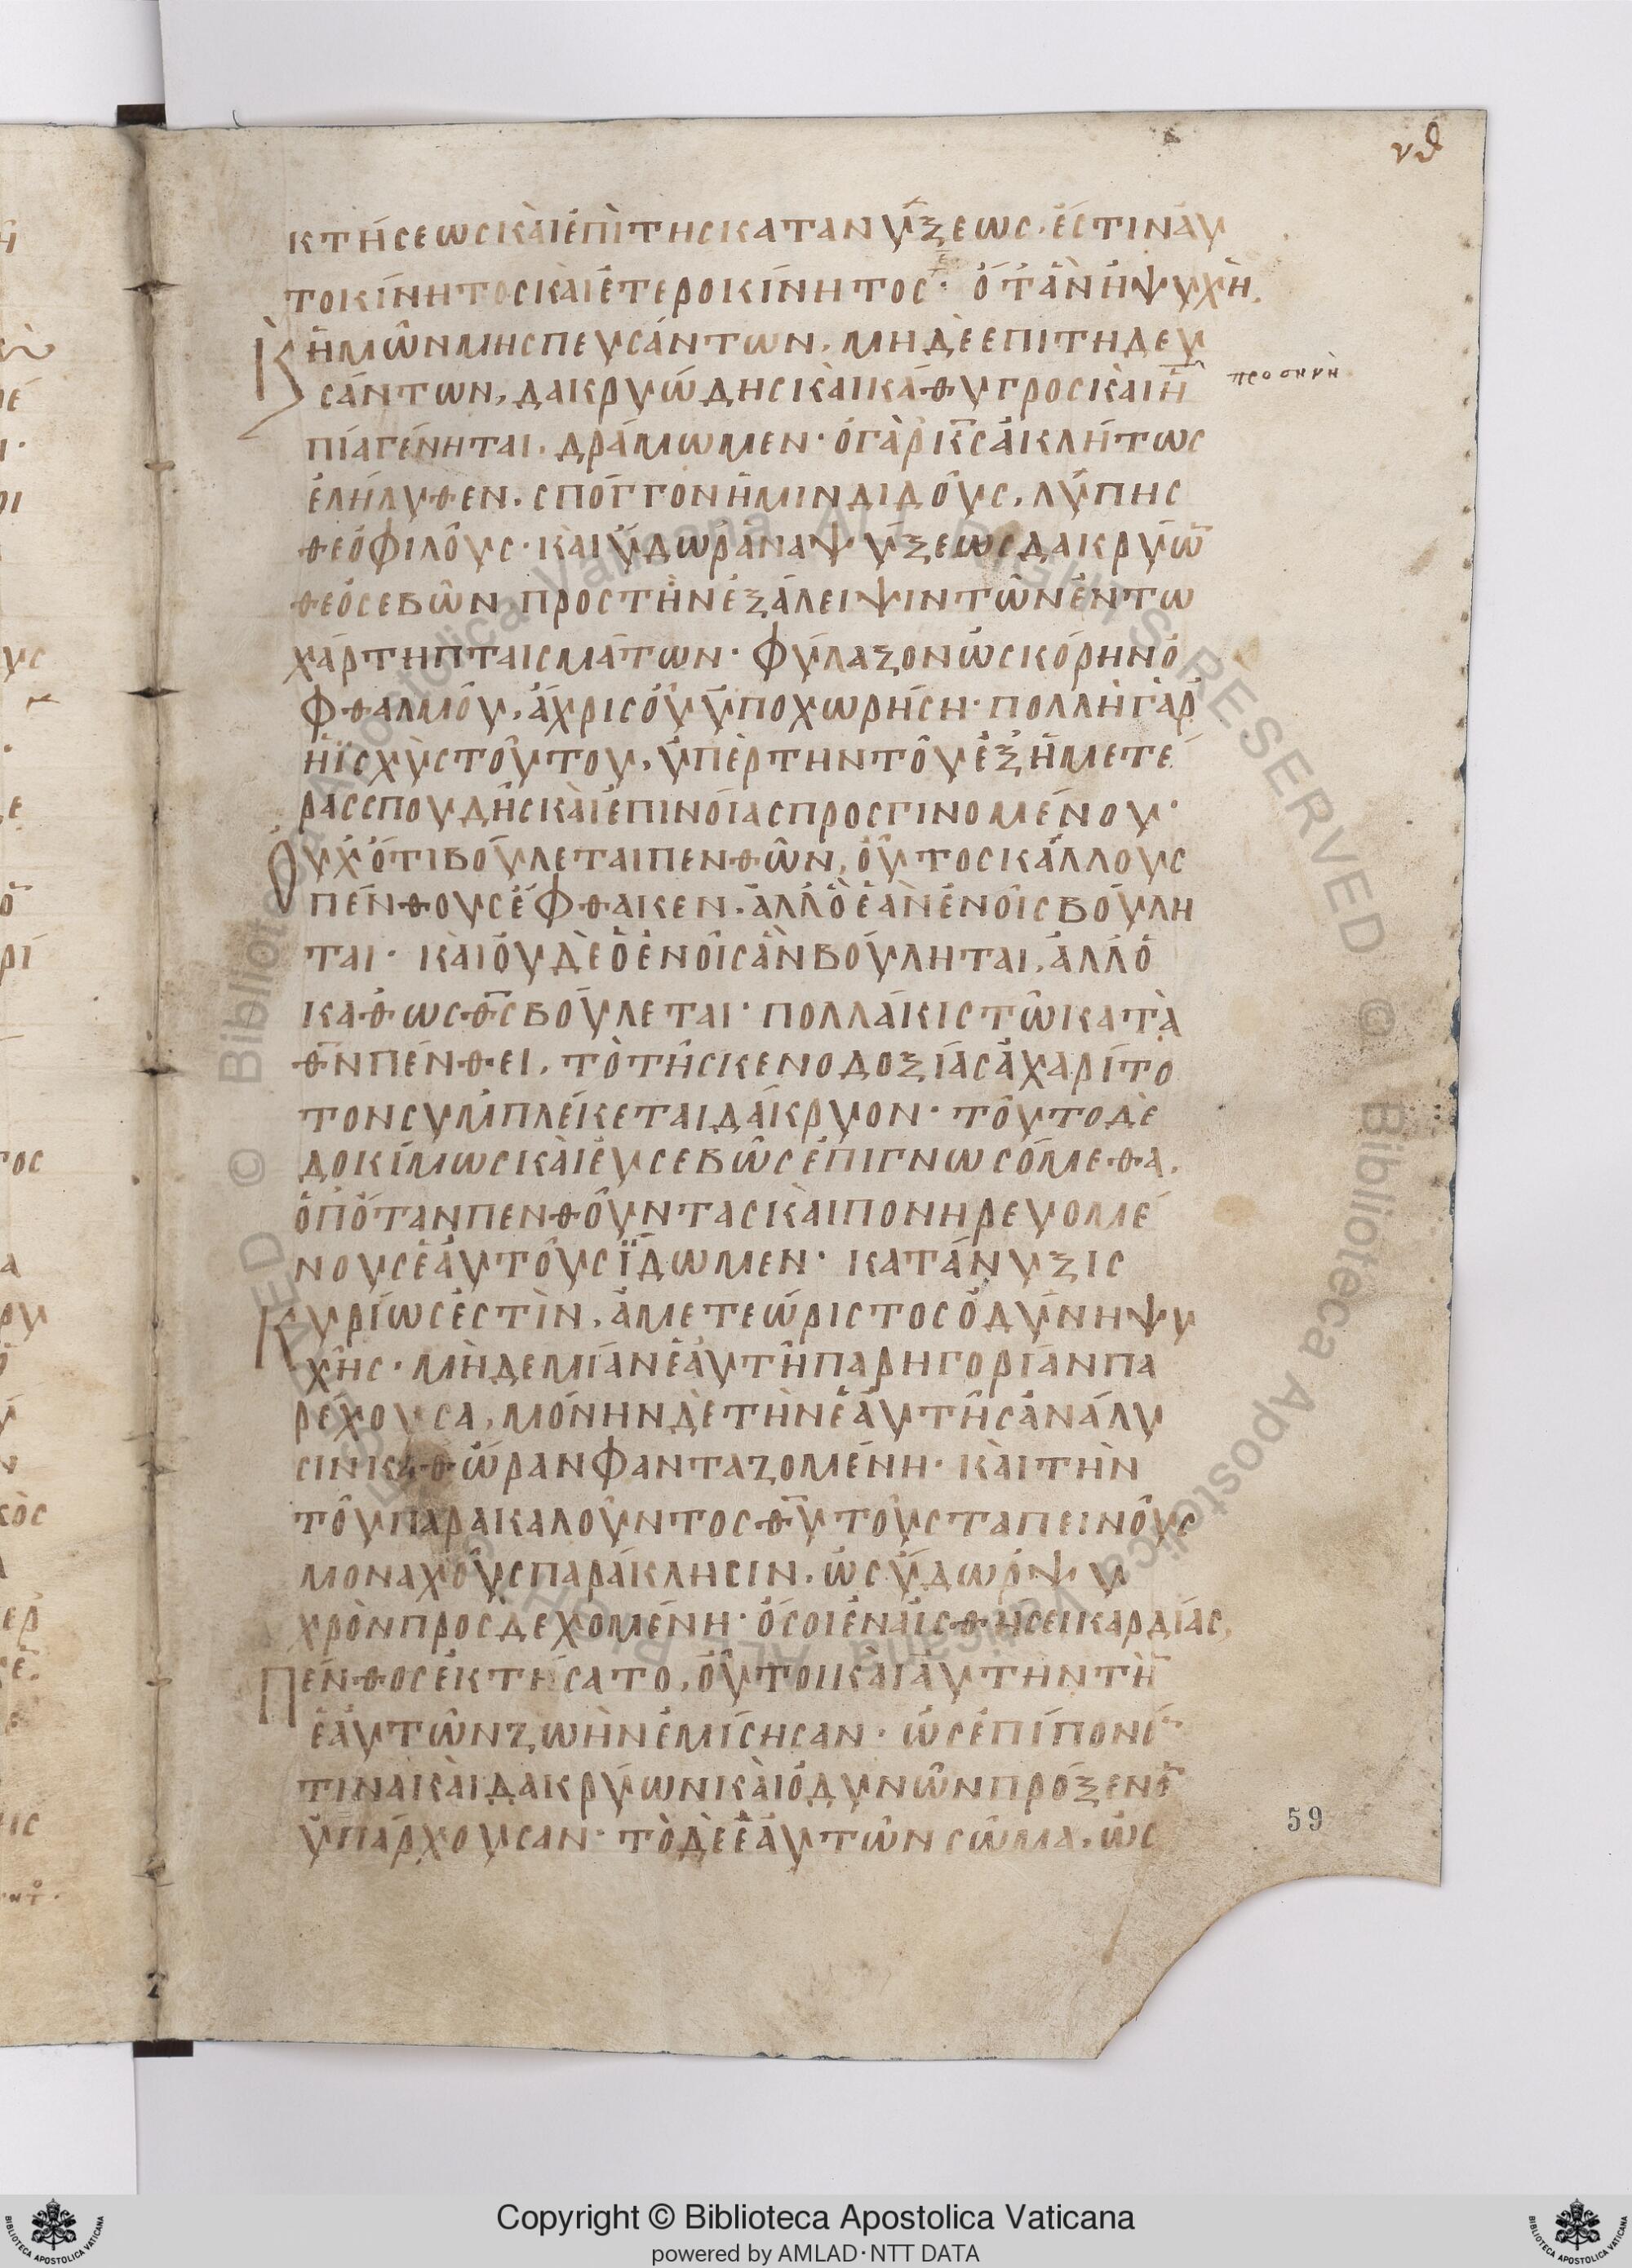 νθ
κτήσεως καὶ ἐπὶ τῆς κατανύξεως, ἔστιν ἀυ
τοκίνητος καὶ ἑτεροκίνητος· ὅτἂν ἡ ψυχὴ
ἡμῶν μὴ σπευσάντων, μηδὲ ἐπιτηδευ
σάντων, δακρυώδης κὰι κάθυγρος κὰι ἠ
προσηνὴ
πία γένηται, δράμωμεν· ὁ γὰρ κ̅ς̅ ἀκλήτως
ἐλήλυθεν, σπόγγον ἡμῖν διδοὺς, λύπης
θεοφιλοῦς· κὰι ὕδωρ ἀναψύξεως δακρύω̅
θεοσεβῶν, προς τὴν ἐξάλειψιν τῶν ἐν τω
χάρτη πταισμάτων· φύλαξον ὡς κόρην ὀ
φθαλμοῦ, ἄχρις ὁῦ ὑποχωρήση· πολλὴ γὰρ
ἡ ἰσχὺς τούτου, ὑπὲρ την τοῦ ἐξ ἡμετέ
ρας σπουδῆς κὰι ἐπινοίας προσγινομένου·
Ουχ ὅτι βούλεται πενθῶν, οὗτος κάλλους
πένθους ἔφθακεν· ἀλλ ὃ ἐὰν ἐν οἷς βούλη
ται· κὰι ὀυδὲ ὃ ἐν οἷς ἂν βούληται, ἀλλ ὃ
καθως θ̅ς̅ βούλεται· πολλάκις τῶ κατὰ
θ̅ν̅ πένθει, τὸ τῆς κενοδοξίας ἀχαρίτο
τον συμπλέκεται δάκρυον· τοῦτο δὲ
δοκίμως κὰι ἐυσεβῶς ἐπιγνωσόμεθα,
ὁπόταν πενθοῦντας κὰι πονηρευομέ
νους ἑαυτοὺς ἴδωμεν· κατάνυξις
Κυρίως ἐστὶν, ἀμετεώριστος ὀδύνη ψυ
χῆς· μὴδεμίαν ἑαυτῆ παρηγορίαν πα
ρέχουσα, μόνην δὲ τὴν ἑαυτῆς ἀνάλυ
σιν καθ ὥραν φανταζομένη· κὰι τὴν
τοῦ παρακαλοῦντος θ̅υ̅ τοὺς ταπεινοὺς
μοναχοὺς παράκλησιν, ὡς ὕδωρ ψυ
χρὸν προσδεχομένη· ὅσοι ἐν αἰσθήσει καρδίας,
Πένθος ἐκτήσατο, οὗτοι κὰι ἀυτην τὴ̅
ἑαυτῶν ζωὴν ἐμίσησαν· ὡς ἐπίπονό̅
τινα κὰι δακρύων κὰι ὀδυνῶν πρόξενο̅
ὑπάρχουσαν· τὸ δὲ ἑαυτῶν σῶμα, ὡς
59
Copyright © Biblioteca Apostolica Vaticana
powered by AMLAD·NTT DATA